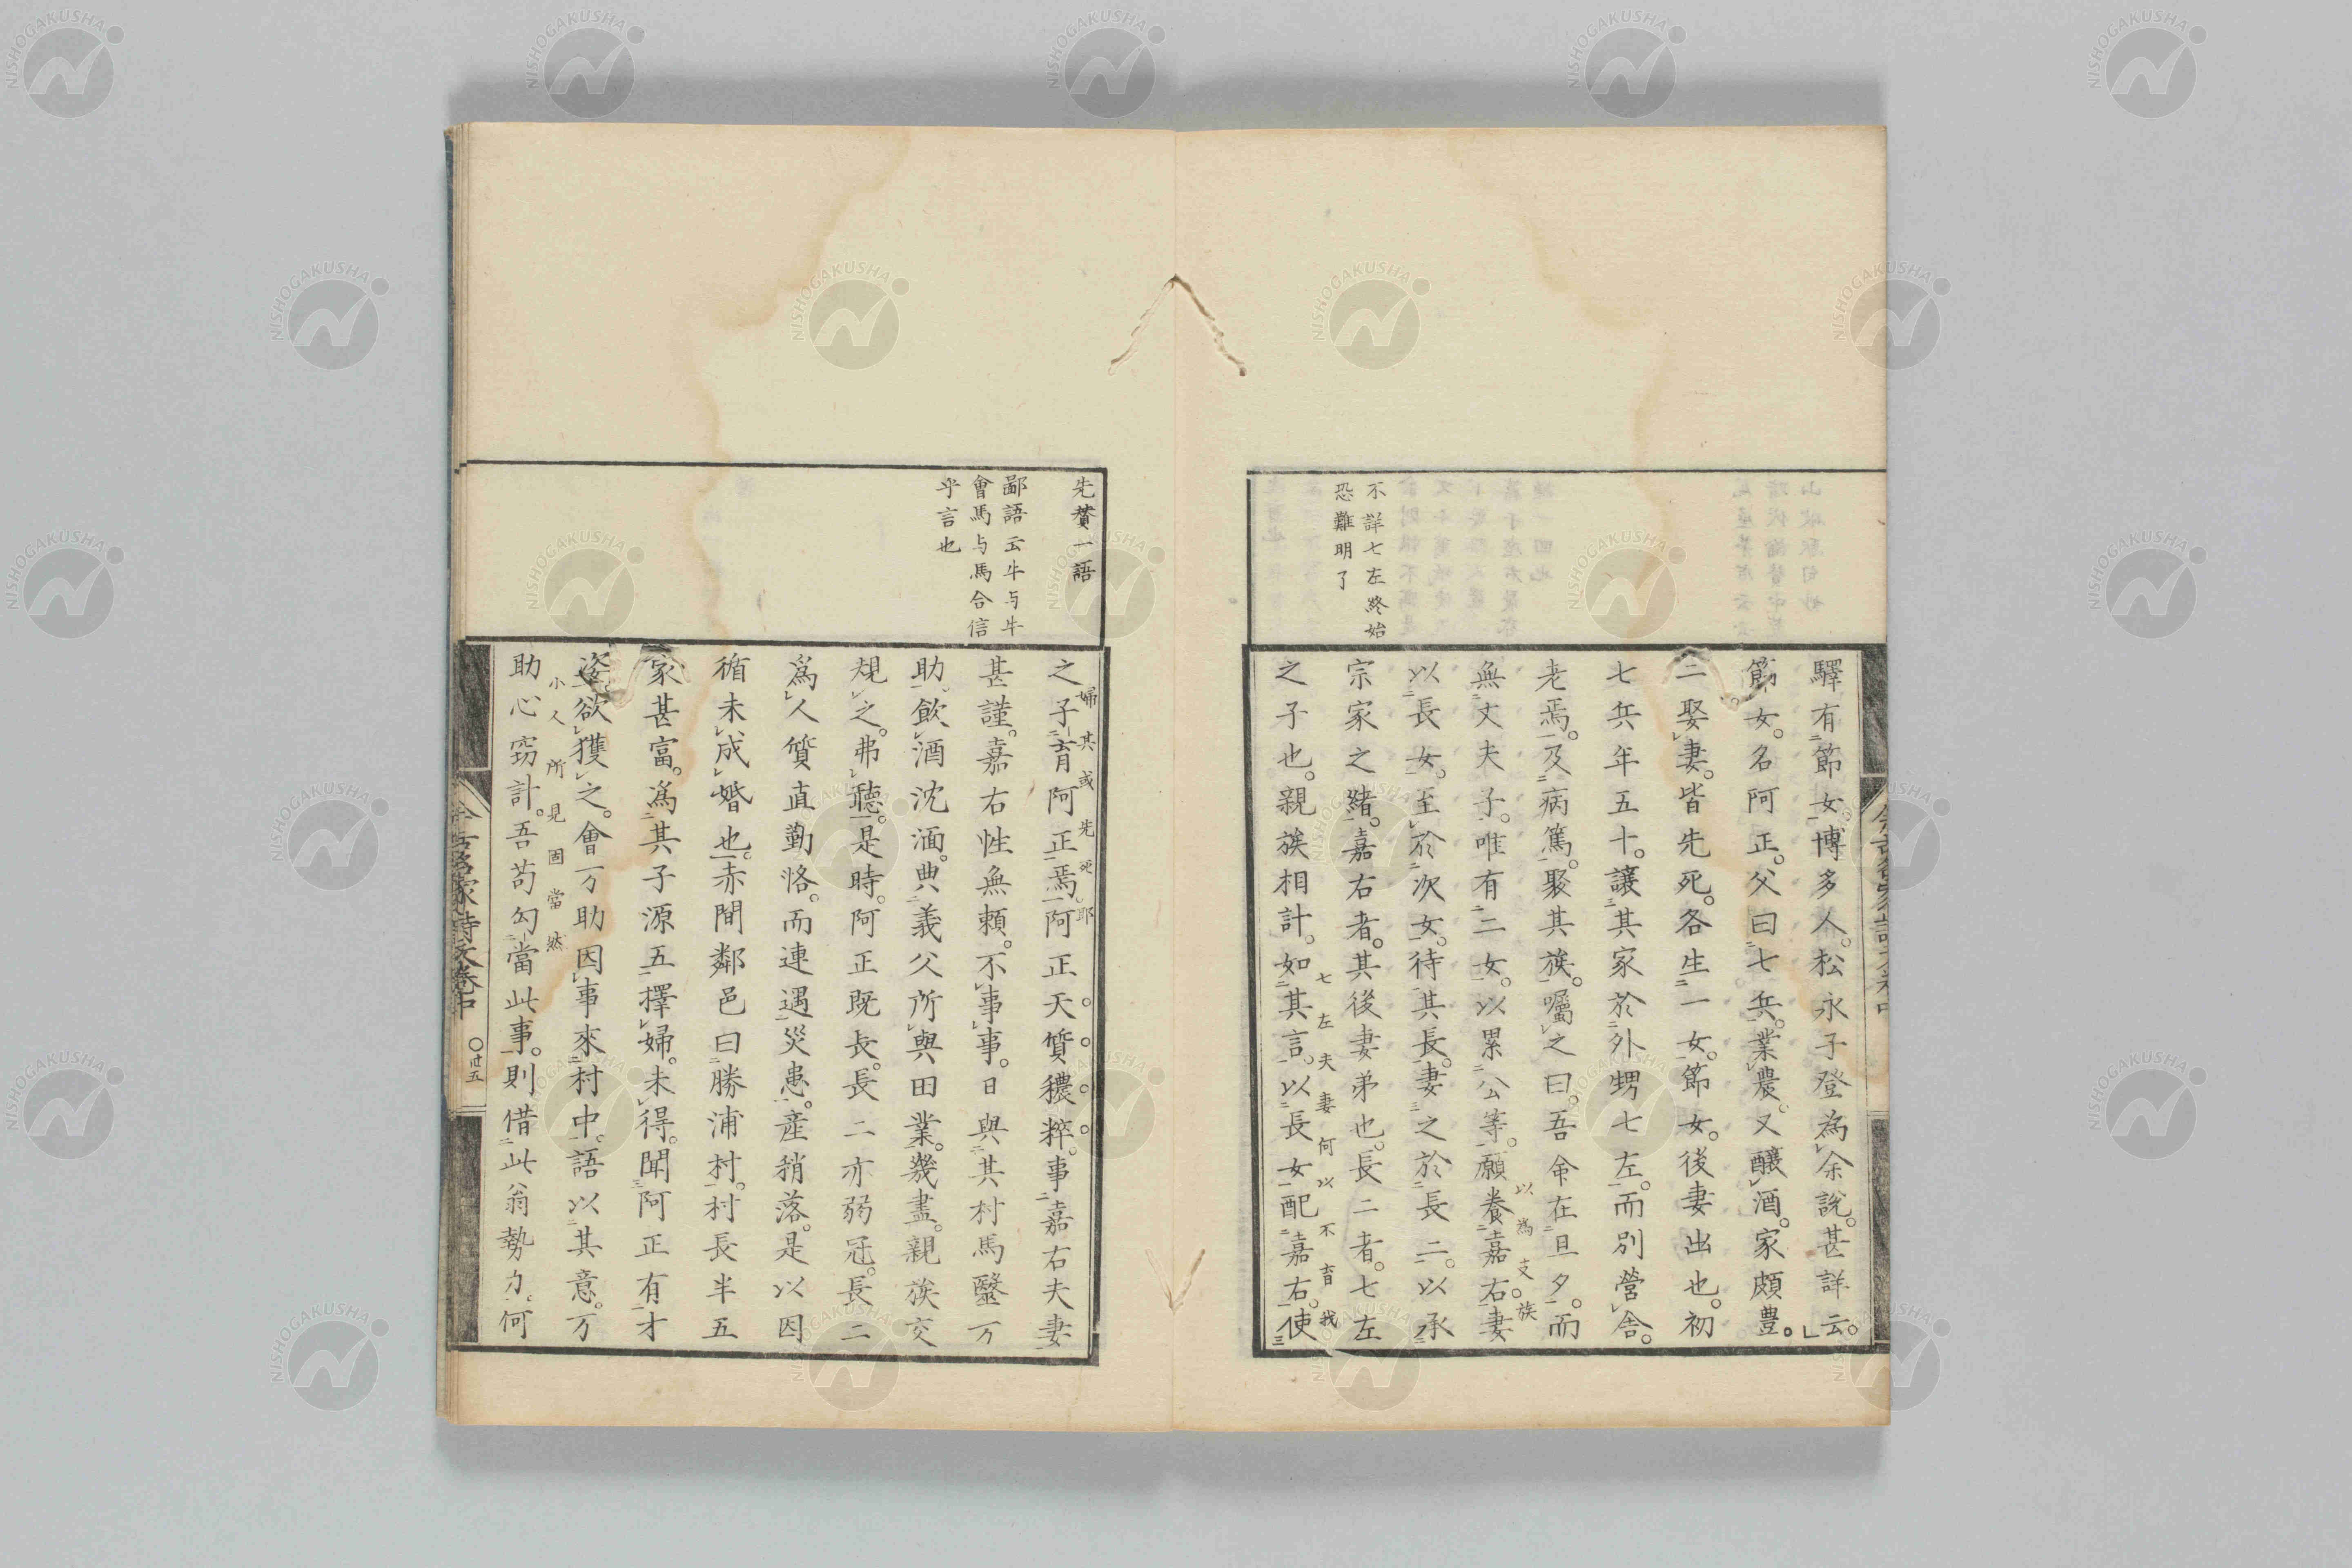 不詳七左終始
恐難明了
驛有節女博多人。松永子登為余說。甚詳云。
節女。名阿正。父曰七兵。業農。又釀酒。家頗豊。
二娶妻。皆先死。各生一女。節女。後妻出也。初
七兵年五十。讓其家於外甥七左。而別營舍。
老焉。及病篤。聚其族。囑之曰。吾命在旦夕。而
無丈夫子。唯有二女。以累公等。願養嘉右。妻
以為支族
以長女。至於次女。待其長。妻之於長二。以承
宗家之緒。嘉右者。其後妻弟也。長二者。七左
七左夫妻何以不育我
之子也。親族相計。如其言。以長女配嘉右。使
先贊一語
鄙語云牛与牛
會馬与馬合信
乎言也
婦其或先死耶
之子育阿正焉。阿正天質穠粹。事嘉右夫妻
甚謹。嘉右性無頼。不事事。日與其村馬醫万
助飲酒沈湎。典義父所與田業。幾盡。親族交
規之。弗聽。是時。阿正既長。長二亦弱冠。長二
為人質直勤恪。而連遇災患。產稍落。是以因
循未成婚也。赤間鄰邑曰勝浦村。村長半五
家甚富。為其子源五擇婦。未得。聞阿正有才
姿。欲獲之。會万助因事來村中。語以其意。万
小人所見固當然
助心窃計。吾苟勾當此事。則借此翁勢力。何
今古名家詩文卷中
〇廿五
NISHOGAKUSHA